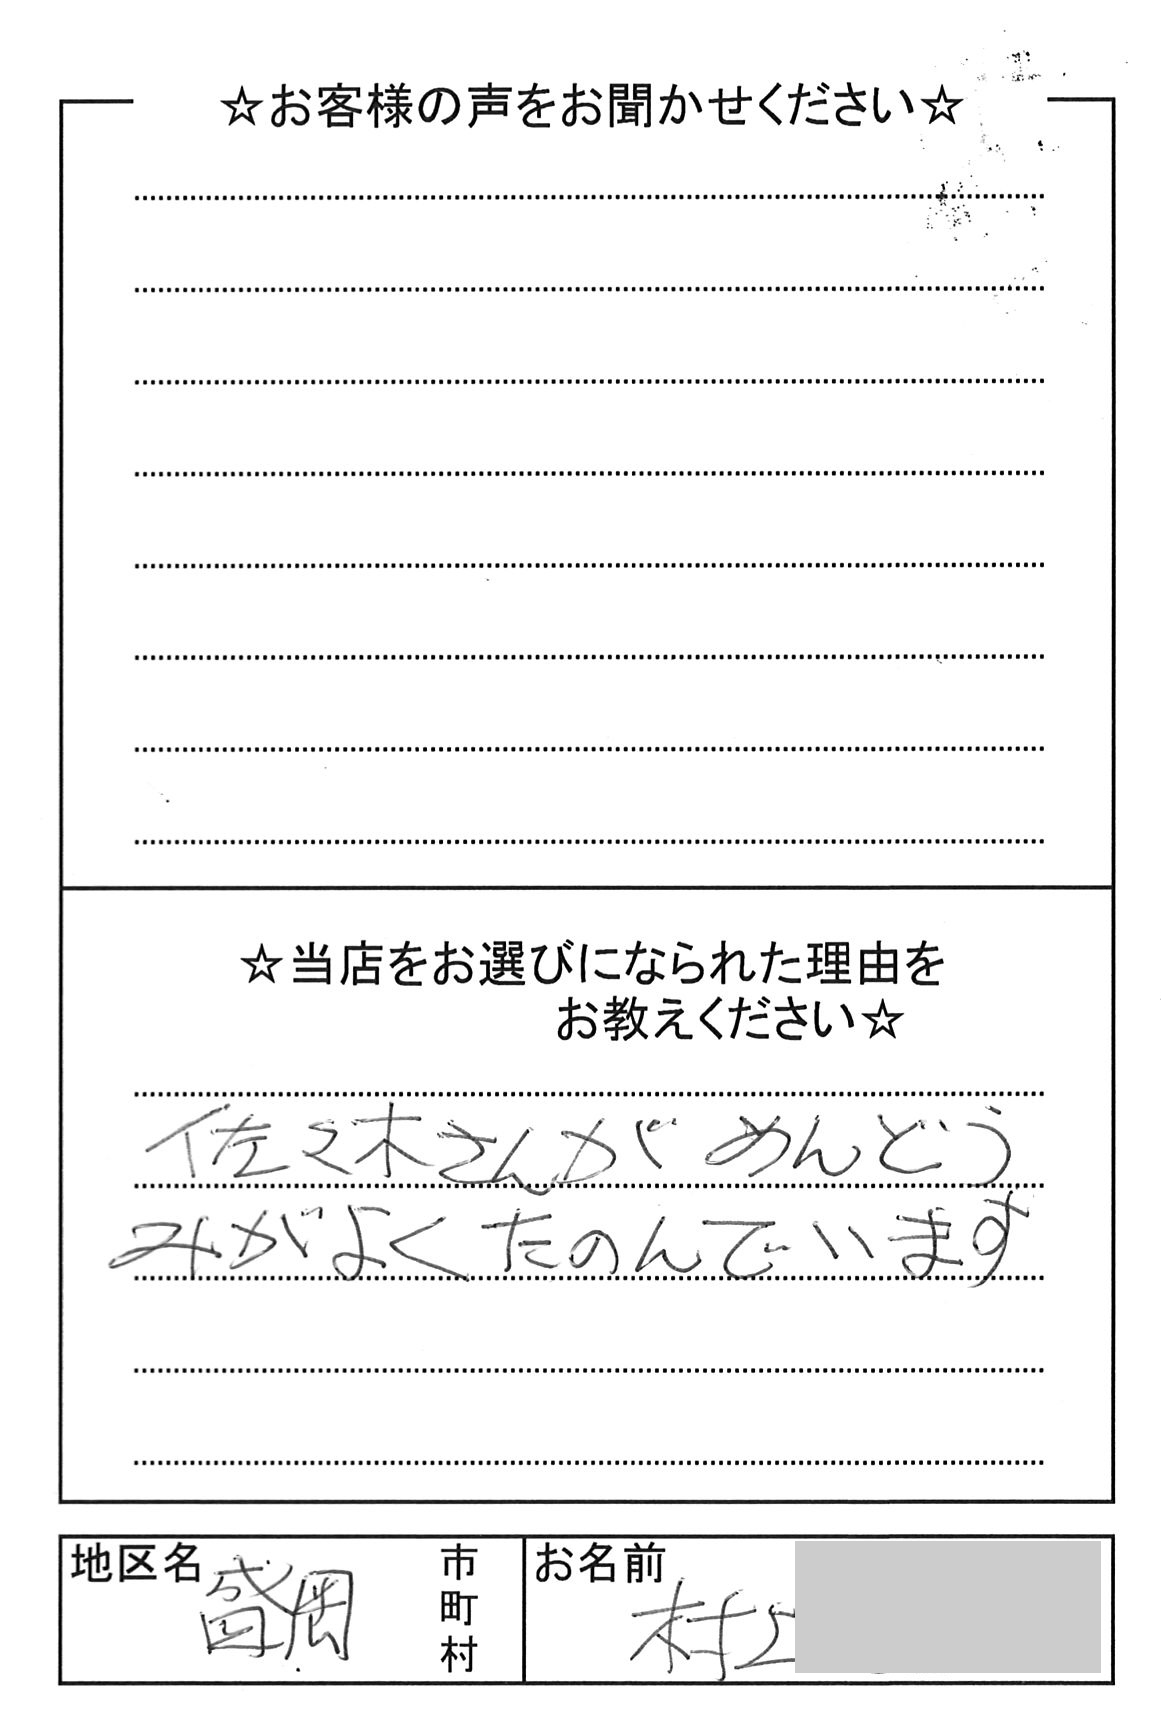 ☆お客様の声をお聞かせください☆
☆当店をお選びになられた理由を
お教えください☆
佐々木さんがめんどう
みがよくたのんでいます
地区名 盛岡 市町村
お名前 村上